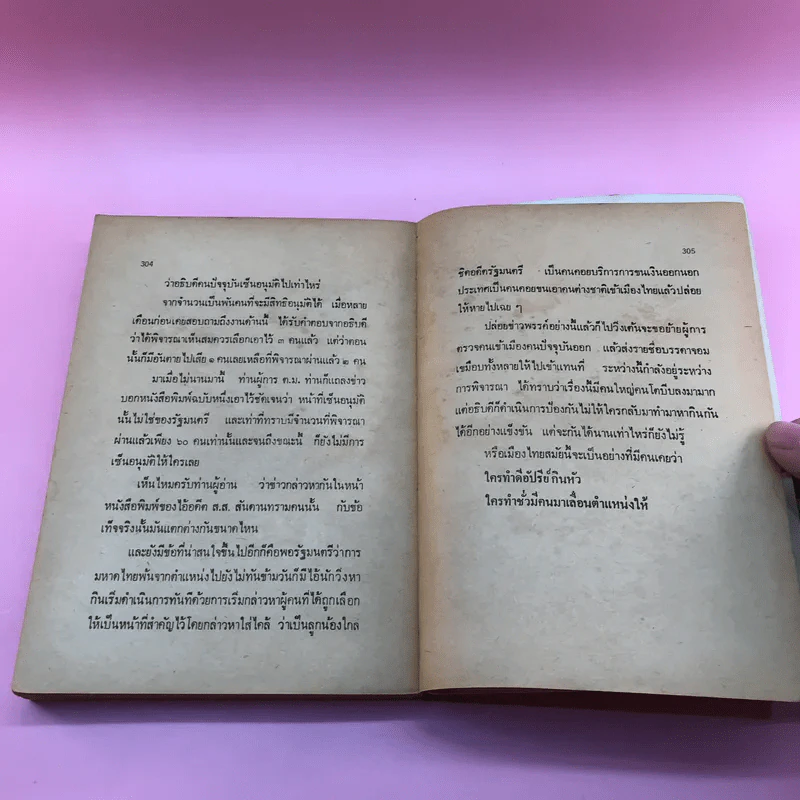 304
ว่าอธิบดีคนปัจจุบันเซ็นอนุมัติไปเท่าไหร่
จากจำนวนเป็นพันคนที่จะมีสิทธิอนุมัติได้ เมื่อหลาย
เดือนก่อนเคยสอบถามถึงงานด้านนี้ ได้รับคำตอบจากอธิบดี
ว่าได้พิจารณาเห็นสมควรเลือกเอาไว้ ๓ คนแล้ว แต่ว่าตอน
นั้นก็มีอันตายไปเสีย ๑ คนเลยเหลือที่พิจารณาผ่านแล้ว ๒ คน
มาเมื่อไม่นานมานี้ ท่านผู้การ ต.ม. ท่านก็แถลงข่าว
บอกหนังสือพิมพ์ฉบับหนึ่งเอาไว้ชัดเจนว่า หน้าที่เซ็นอนุมัติ
นั้นไม่ใช่ของรัฐมนตรี และเท่าที่ทราบมีจำนวนที่พิจารณา
ผ่านแล้วเพียง ๖๐ คนเท่านั้นและจนถึงขณะนี้ ก็ยังไม่มีการ
เซ็นอนุมัติให้ใครเลย
เห็นไหมครับท่านผู้อ่าน ว่าข่าวกล่าวหากันในหน้า
หนังสือพิมพ์ของไอ้อดีต ส.ส. สันดานทรามคนนั้น กับข้อ
เท็จจริงนั้นมันแตกต่างกันขนาดไหน
และยังมีข้อที่น่าสนใจขึ้นไปอีกก็คือพอรัฐมนตรีว่าการ
มหาดไทยพ้นจากตำแหน่งไปยังไม่ทันข้ามวันก็มีไอ้นักวิ่งหา
กินเริ่มดำเนินการทันทีด้วยการเริ่มกล่าวหาผู้คนที่ได้ถูกเลือก
ให้เป็นหน้าที่สำคัญไว้โดยกล่าวหาใส่ไคล้ ว่าเป็นลูกน้องใกล้
305
ชิดอดีตรัฐมนตรี เป็นคนคอยบริการการขนเงินออกนอก
ประเทศเป็นคนคอยขนเอาคนต่างชาติเข้าเมืองไทยแล้วปล่อย
ให้หายไปเฉย ๆ
ปล่อยข่าวพรรค์อย่างนี้แล้วก็ไปวิ่งเต้นจะขอย้ายผู้การ
ตรวจคนเข้าเมืองคนปัจจุบันออก แล้วส่งรายชื่อบรรดาจอม
เขมือบทั้งหลายให้ไปเข้าแทนที่ ระหว่างนี้กำลังอยู่ระหว่าง
การพิจารณา ได้ทราบว่าเรื่องนี้มีคนใหญ่คนโตบีบลงมามาก
แต่อธิบดีก็ดำเนินการป้องกันไม่ให้ใครกลับมาทำมาหากินกัน
ได้อีกอย่างแข็งขัน แต่จะกันได้นานเท่าไหร่ก็ยังไม่รู้
หรือเมืองไทยสมัยนี้จะเป็นอย่างที่มีคนเคยว่า
ใครทำดีอัปรีย์กินหัว
ใครทำชั่วมีคนมาเลื่อนตำแหน่งให้